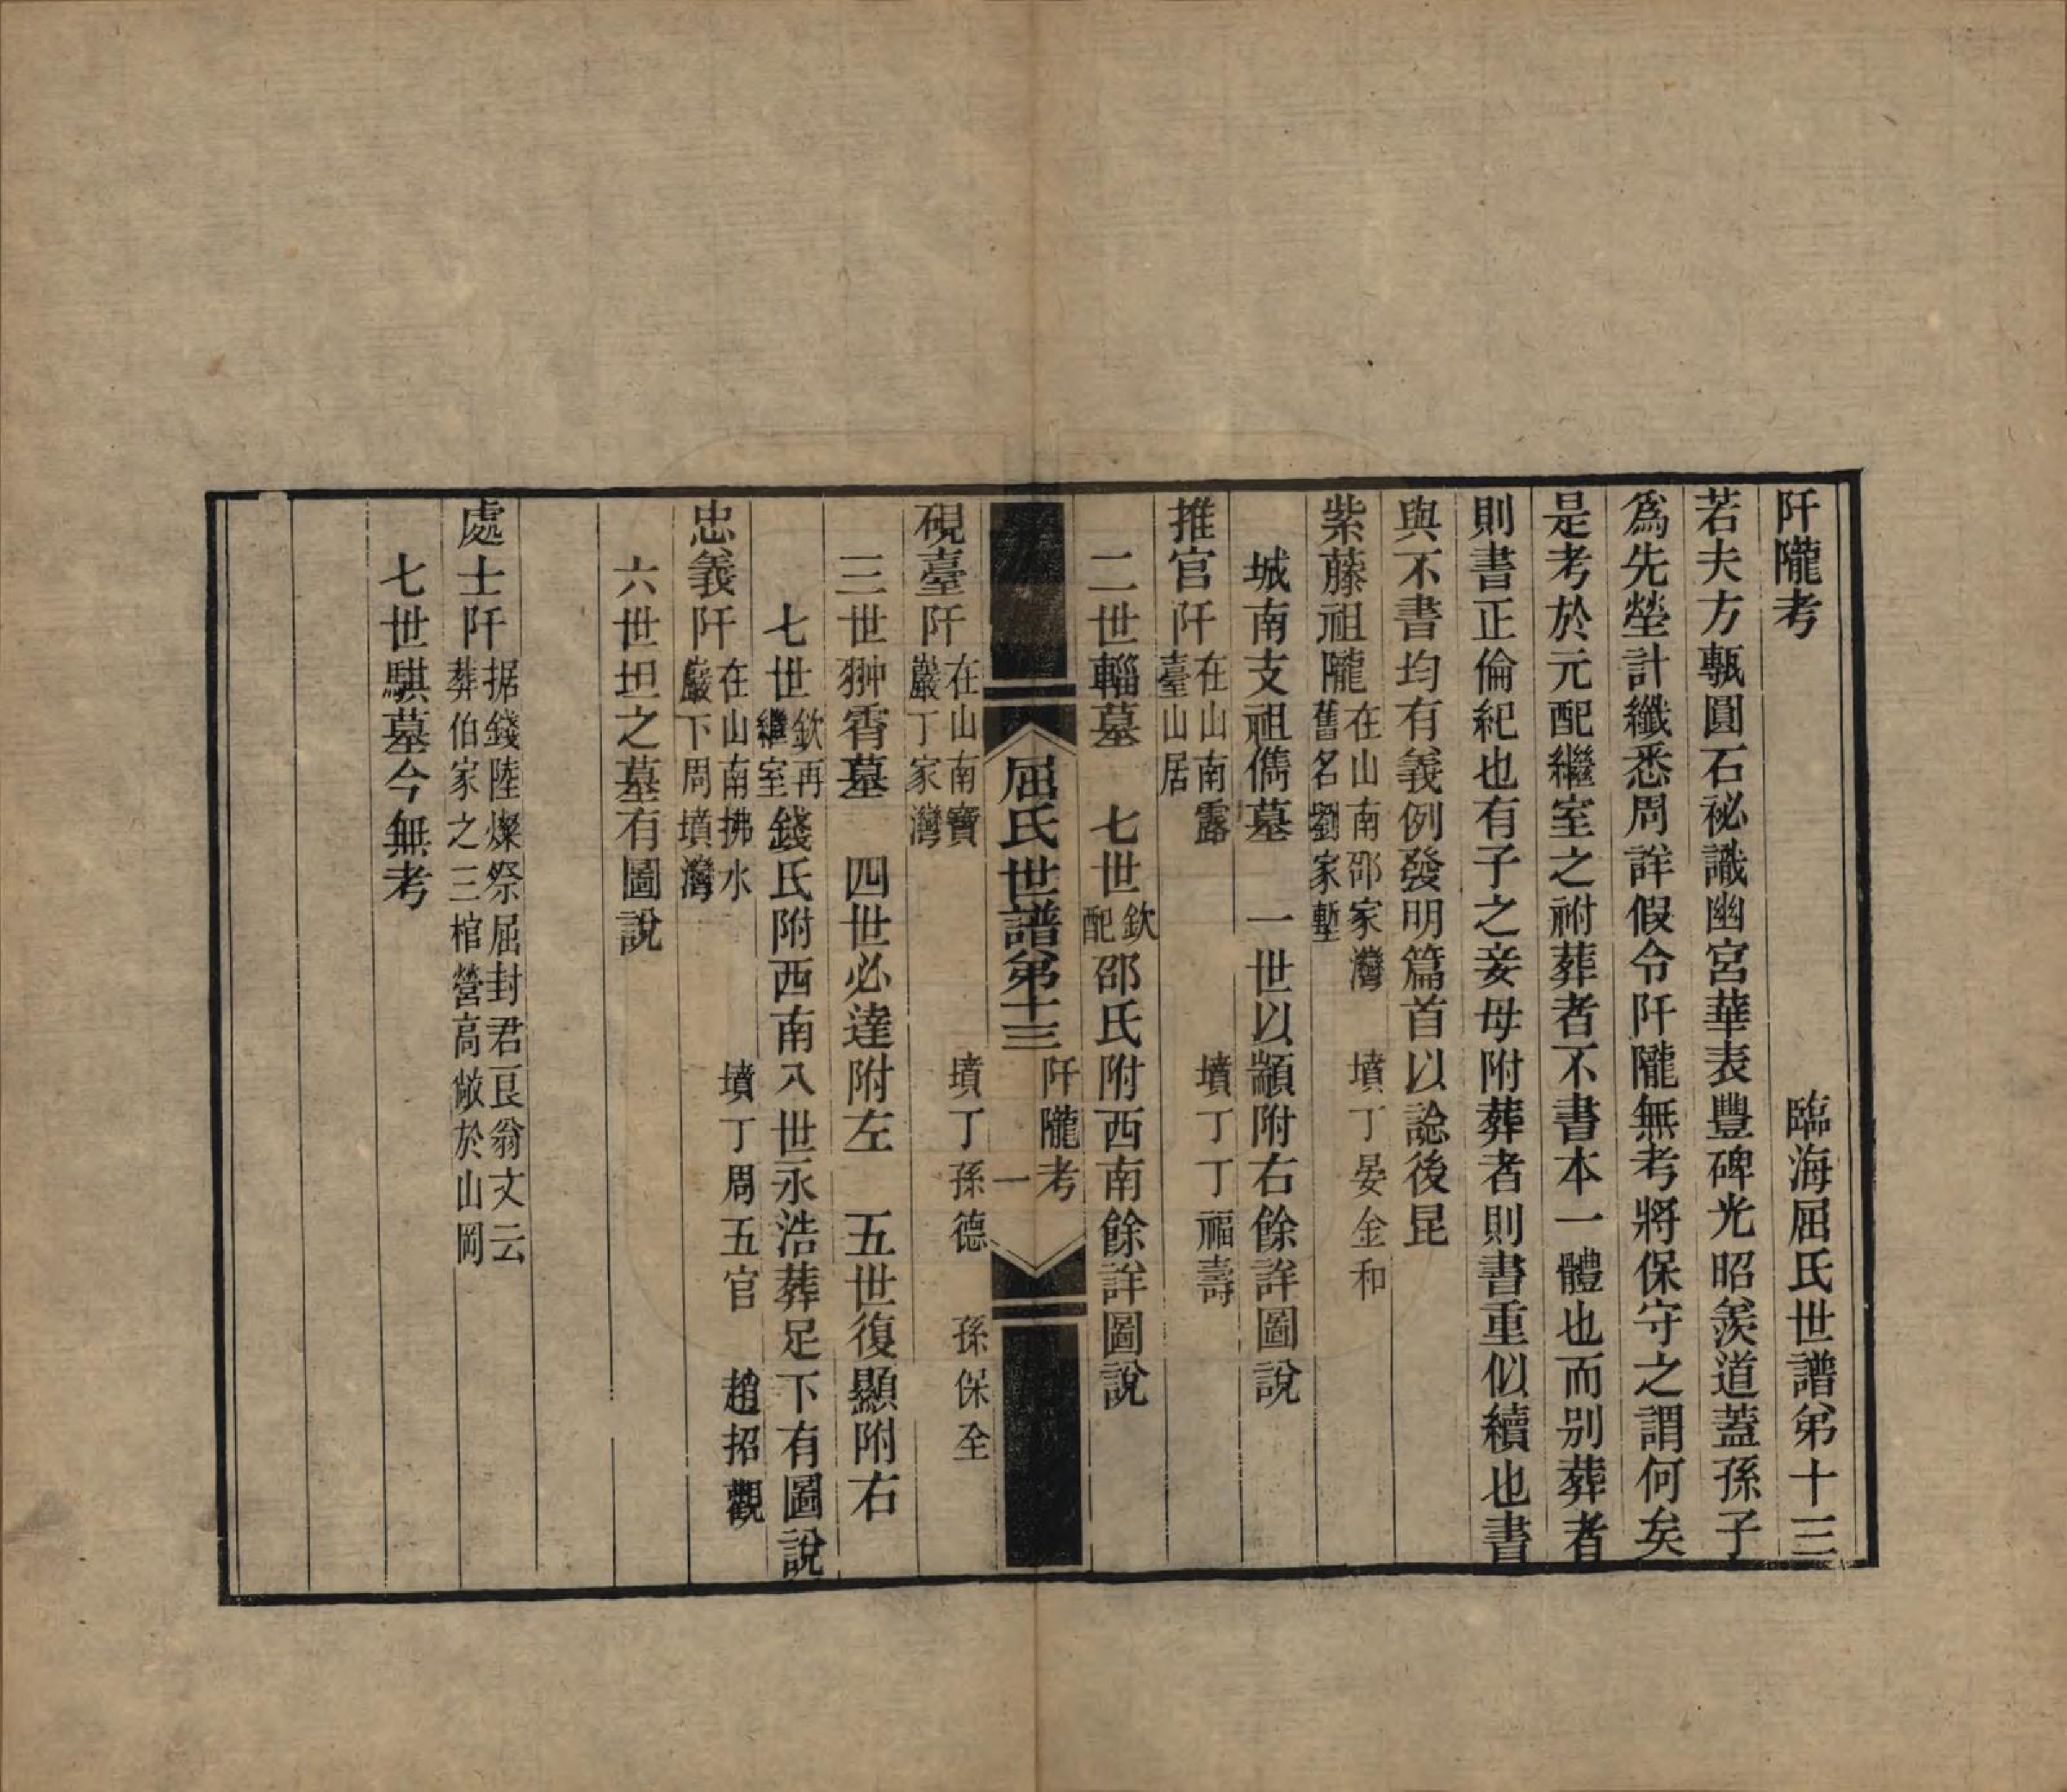 阡隴考　臨海屈氏世譜弟十三
若夫方甎圓石祕識幽宮華表豐碑光昭羨道蓋孫子
爲先塋計纖悉周詳假令阡隴無考將保守之謂何矣
是考於元配繼室之祔葬者不書本一體也而別葬者
則書正倫紀也有子之妾母附葬者則書重似續也書
與不書均有義例發明篇首以諗後昆
紫藤祖隴 在山南邵家灣　墳丁晏金和
舊名劉家塹
城南支祖儁墓　一世以顓附右餘詳圖說
推官阡 在山南露　墳丁丁福壽
臺山居
二世輜墓　七世 欽配 邵氏附西南餘詳圖說
屈氏世譜弟十三 阡隴考 一
硯臺阡 在山南寶　墳丁孫德　孫保全
巖丁家灣
三世翀霄墓　四世必達附左　五世復顯附右
七世 欽再繼室 錢氏附西南八世永浩葬足下有圖說
忠義阡 在山南拂水　墳丁周五官　趙招觀
巖下周墳灣
六世坦之墓有圖說
處士阡 据錢陸燦祭屈封君艮翁文云
葬伯家之三棺營高敞於山岡
七世騏墓今無考